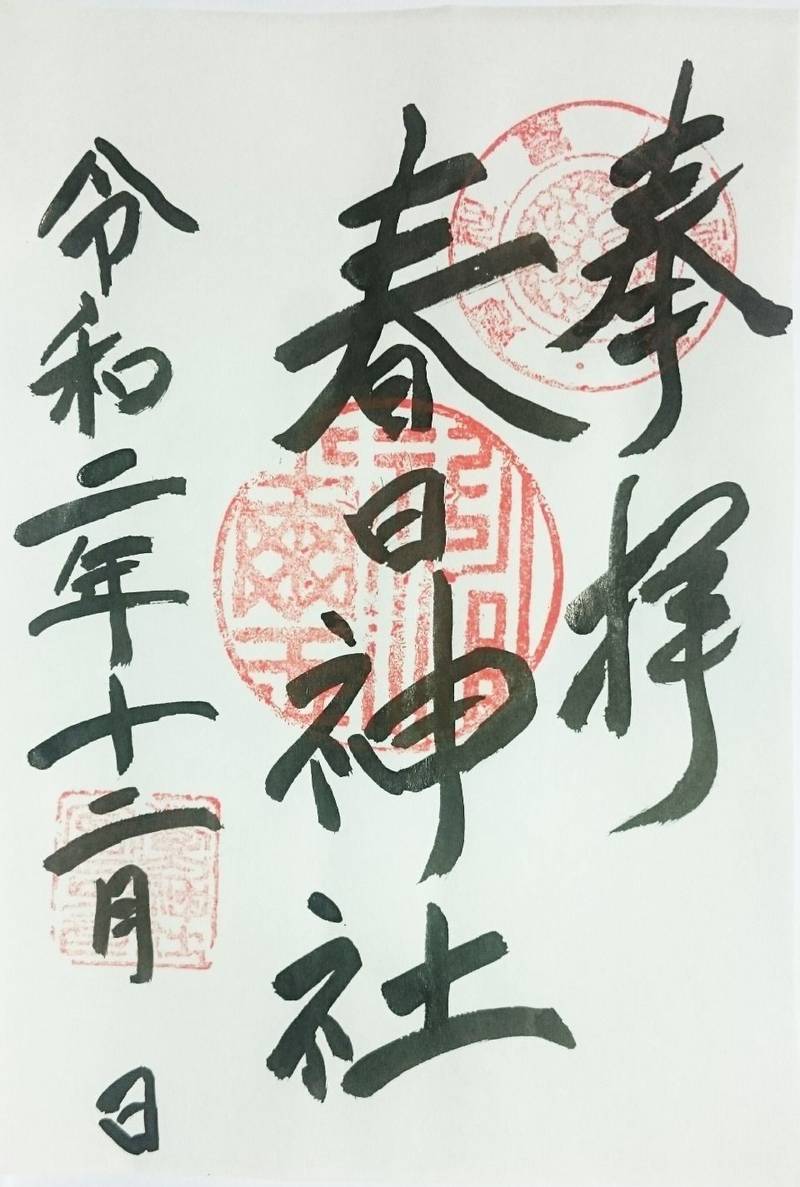 奉拝
春日神社
令和二年十二月 日